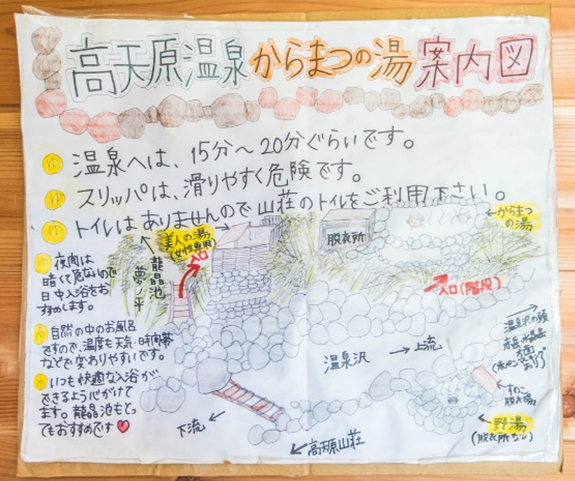 高天原温泉からまつの湯案内図
温泉へは、15分〜20分ぐらいです。
スリッパは、滑りやすく危険です。
トイルはありませんので山荘のトイルをご利用下さい。
夜間は
暗くて危ないので
日中入浴をお
すすめします。
自然の中のお風呂
ですので、温度も天気・時間帯
などで変わりやすいです。
いつも快適な入浴が
できるよう心がけて
ます。龍晶池もとっ
てもおすすめです
龍晶池
夢ノ平
美人の湯
(女性専用)
入口
脱衣所
からまつ
の湯
入口(階段)
温泉沢
上流
温泉沢の頭
方面
すのこ
脱衣場
野湯
(脱衣所なし)
下流
高天原山荘